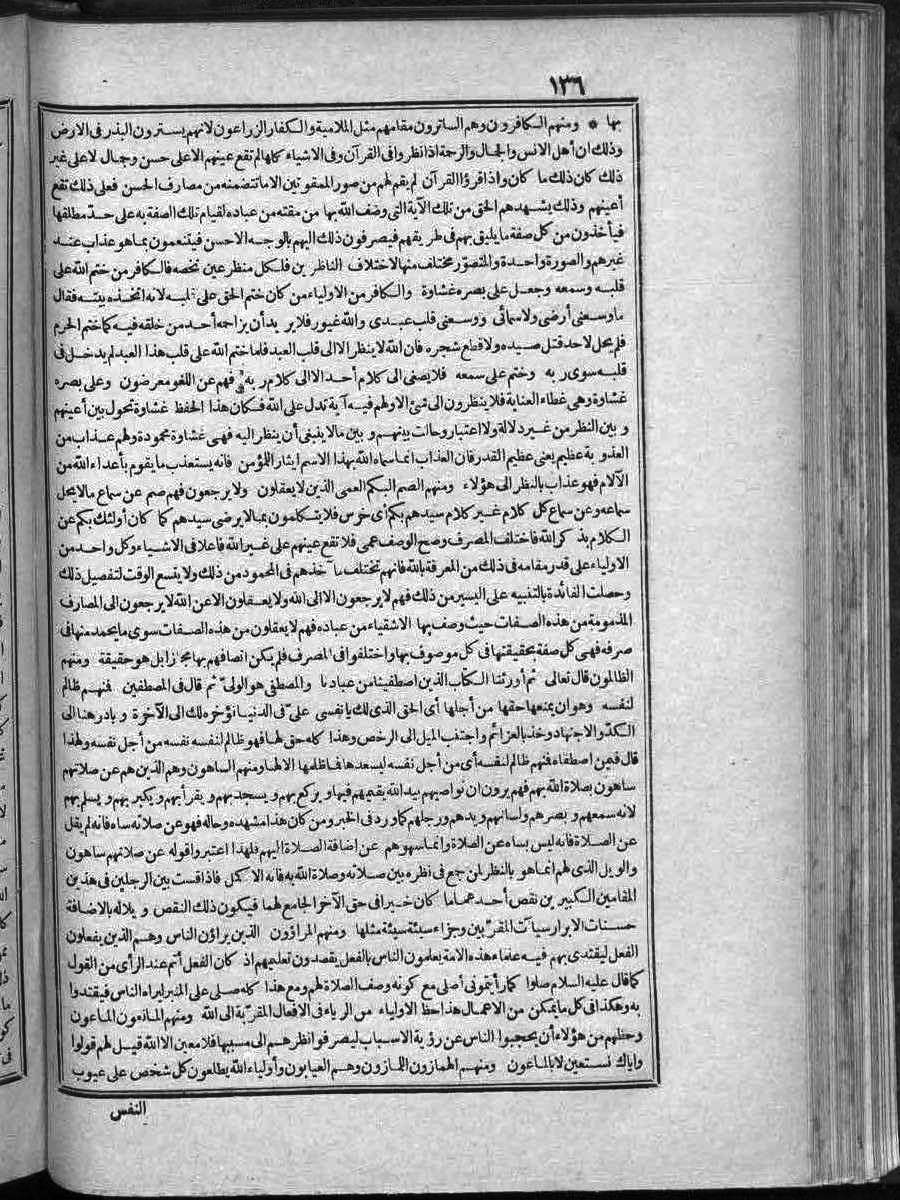 ١٣٦
بها * ومنهم الكافرون وهم الساترون مقامهم مثل الملامية والكفار الزراعون لانهم يسترون البذر فى الارض
وذلك ان أهل الانس والجمال والرحمة اذا نظروا فى القرآن وفى الاشياء كلها لم تقع عينهم الا على حسن وجمال لا على غير
ذلك كان ذلك ما كان واذا قرؤا القرآن لم يقم لهم من صور الممقوتين الا ما تتضمنه من مصارف الحسن فعلى ذلك تقع
أعينهم وذلك يشهدهم الحق من تلك الآية التى وصف الله بها من مقته من عباده لقيام تلك الصفة به على حدّ مطلقها
فيأخذون من كل صفة ما يليق بهم فى طريقهم فيصرفون ذلك اليهم بالوجه الاحسن فيتنعمون بما هو عذاب عند
غيرهم والصورة واحدة والمتصوّر مختلف منها لاختلاف الناظرين فلكل منظر عين تخصه فالكافر من ختم الله على
قلبه وسمعه وجعل على بصره غشاوة والكافر من الاولياء من كان ختم الحق على قلبه لانه اتخذه بيته فقال
ما وسعنى أرضى ولا سمائى ووسعنى قلب عبدى والله غيور فلا يريد أن يزاحمه أحد من خلقه فيه كما ختم الحرم
فلم يحل لاحد قتل صيده ولا قطع شجره فان الله لا ينظر الا الى قلب العبد فلما ختم الله على قلب هذا العبد لم يدخل فى
قلبه سوى ربه وختم على سمعه فلا يصغى الى كلام أحد الا الى كلام ربه فهم عن اللغو معرضون وعلى بصره
غشاوة وهى غطاء العناية فلا ينظرون الى شئ الا ولهم فيه آية تدل على الله فكان هذا الحفظ غشاوة تحول بين أعينهم
وبين النظر من غير دلالة ولا اعتبار وحالت بينهم وبين ما لا ينبغى أن ينظر اليه فهى غشاوة محمودة ولهم عذاب من
العذوبة عظيم يعنى عظيم القدر فان العذاب انما سماه الله بهذا الاسم ايثارا للمؤمن فانه يستعذب ما يقوم بأعداء الله من
الآلام فهو عذاب بالنظر الى هؤلاء ومنهم الصم البكم العمى الذين لا يعقلون ولا يرجعون فهم صم عن سماع ما لا يحل
سماعه وعن سماع كل كلام غير كلام سيدهم بكم أى خرس فلا يتكلمون بما لا يرضى سيدهم كما كان أولئك بكم عن
الكلام بذكر الله فاختلف المصرف وصح الوصف عمى فلا تقع عينهم على غير الله فاعلا فى الاشياء وكل واحد من
الاولياء على قدر مقامه فى ذلك من المعرفة بالله فانهم تختلف مآخذهم فى المحمود من ذلك ولا يتسع الوقت لتفصيل ذلك
وحصلت الفائدة بالتنبيه على اليسير من ذلك فهم لا يرجعون الا الى الله ولا يعقلون الا عن الله لا يرجعون الى المصارف
المذمومة من هذه الصفات حيث وصف بها الاشقياء من عباده فهم لا يعقلون من هذه الصفات سوى ما يحمد منها فى
صرفه فهى كل صفة بحقيقتها فى كل موصوف بها واختلفوا فى المصرف فلم يكن اتصافهم بها مجازا بل هو حقيقة ومنهم
الظالمون قال تعالى ثم أورثنا الكتاب الذين اصطفينا من عبادنا والمصطفى هو الولىّ ثم قال فى المصطفين فمنهم ظالم
لنفسه وهو ان يمنعها حقها من أجلها أى الحق الذى لك يا نفسى علىّ فى الدنيا نؤخره لك الى الآخرة وبادر هنا الى
الكدّ والاجتهاد وخذ بالعزائم واجتنب الميل الى الرخص وهذا كله حق لها فهو ظالم لنفسه نفسه من أجل نفسه ولهذا
قال فيمن اصطفاه فمنهم ظالم لنفسه أى من أجل نفسه ليسعدها فما ظلمها الا لها ومنهم الساهون وهم الذين هم عن صلاتهم
ساهون بصلاة الله بهم فهم يرون ان نواصيهم بيد الله يقيمهم فيها ويركع بهم ويسجد بهم ويقرأ بهم ويكبر بهم ويسلم بهم
لانه سمعهم وبصرهم ولسانهم ويدهم ورجلهم كما ورد فى الخبر ومن كان هذا مشهده وحاله فهو عن صلاته ساه فانه لم يقل
عن الصلاة فانه ليس بساه عن الصلاة وانما سهوهم عن اضافة الصلاة اليهم فلهذا اعتبروا قوله عن صلاتهم ساهون
والويل الذى لهم انما هو بالنظر لمن جمع فى نظره بين صلاته وصلاة الله به فانه الاكمل فاذا قست بين الرجلين فى هذين
المقامين الكبيرين نقص أحدهما كان خيرا فى حق الآخر الجامع لهما فيكون ذلك النقص ويلا له بالاضافة
حسنات الابرار سيآت المقرّبين وجزاء سيئة سيئة مثلها ومنهم المراؤون الذين يراؤن الناس وهم الذين يفعلون
الفعل ليقتدى بهم فيه علماء هذه الامة يعلمون الناس بالفعل يقصدون تعليمهم اذ كان الفعل أتم عند الرأى من القول
كما قال عليه السلام صلوا كما رأيتمونى أصلى مع كونه وصف الصلاة لهم ومع هذا كله صلى على المنبر ليراه الناس فيقتدوا
به وهكذا فى كل ما يمكن من الاعمال هذا حظ الاولياء من الرياء فى الافعال المقرّبة الى الله ومنهم المانعون الماعون
وحظهم من هؤلاء أن يحجبوا الناس عن رؤية الاسباب ليصرفوا نظرهم الى مسببها فلا معين الا الله قيل لهم قولوا
واياك نستعين لا بالماعون ومنهم الهمازون اللمازون وهم العيابون وأولياء الله يطلعون كل شخص على عيوب
النفس